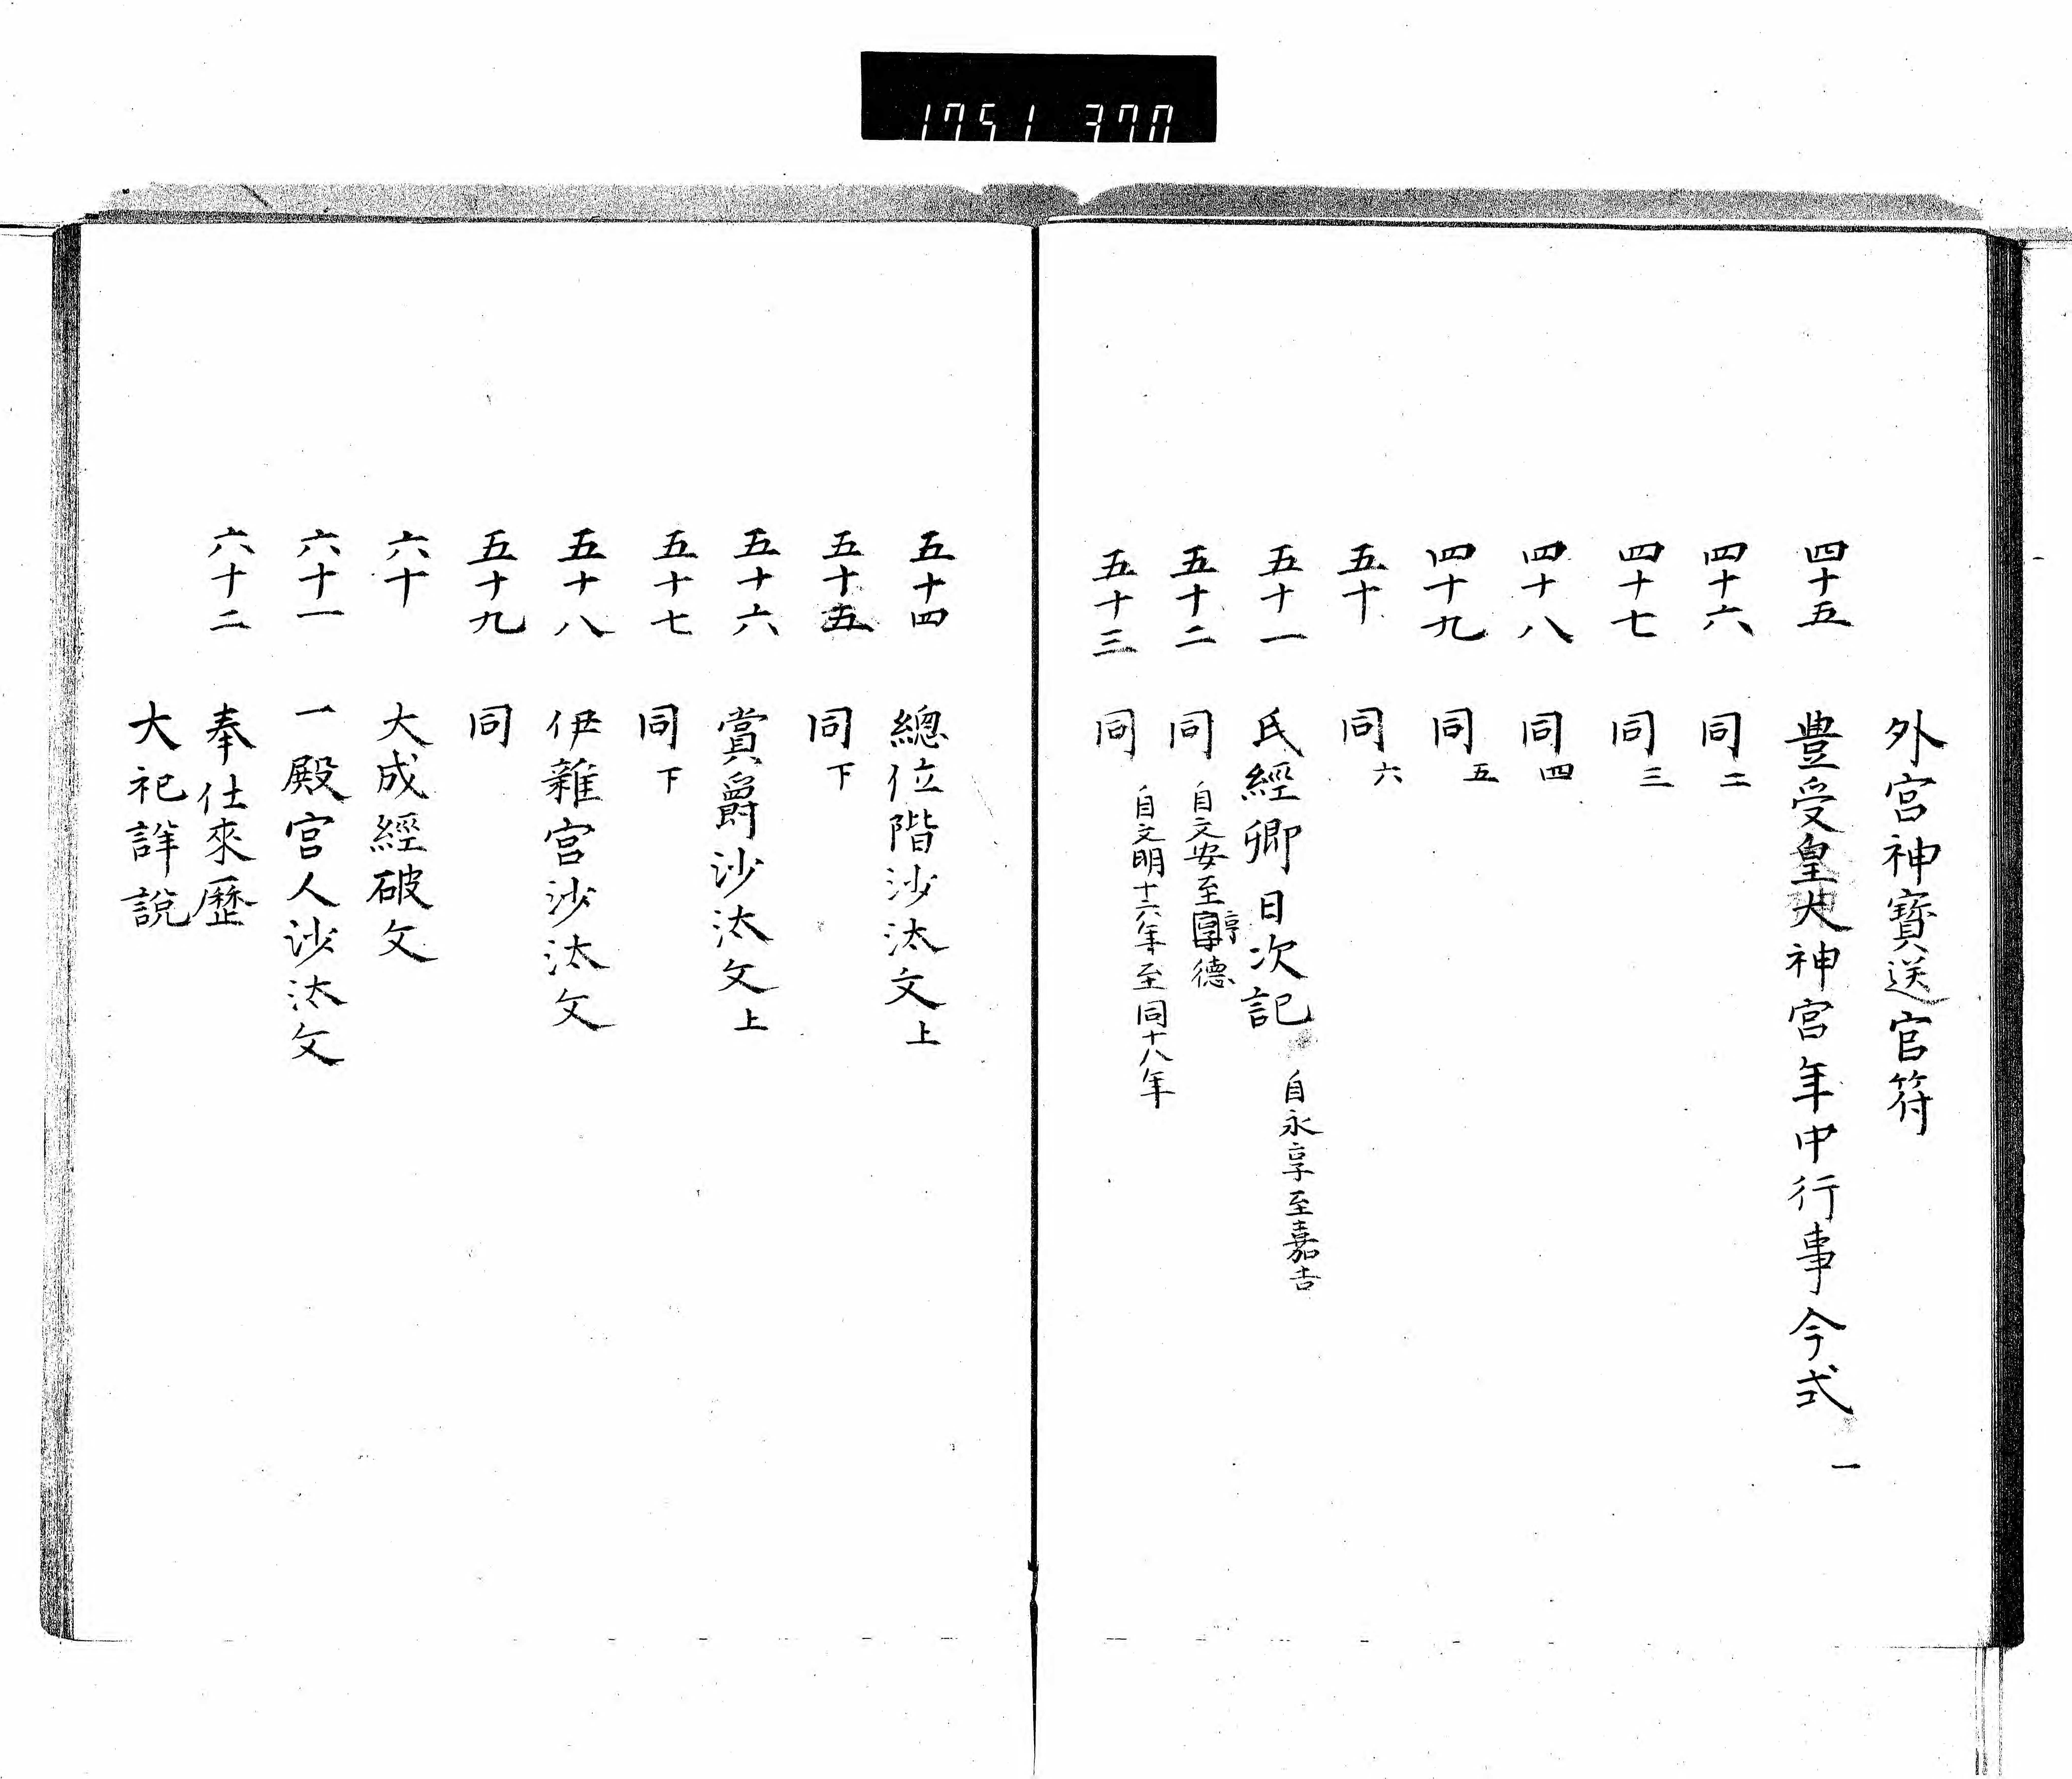 1751 370
外宮神寳送官符
四十五 豊受皇大神宮年中行事今式 一
四十六 同 二
四十七 同 三
四十八 同 四
四十九 同 五
五十 同 六
五十一 氏經卿日次記 自永享至嘉吉
五十二 同 自文安至享德
五十三 同 自文明十六年至同十八年
五十四 總位階沙汰文上
五十五 同 下
五十六 賞爵沙汰文上
五十七 同 下
五十八 伊雜宮沙汰文
五十九 同
六十 大成經破文
六十一 一殿宮人沙汰文
六十二 奉仕來歷
大祀詳說